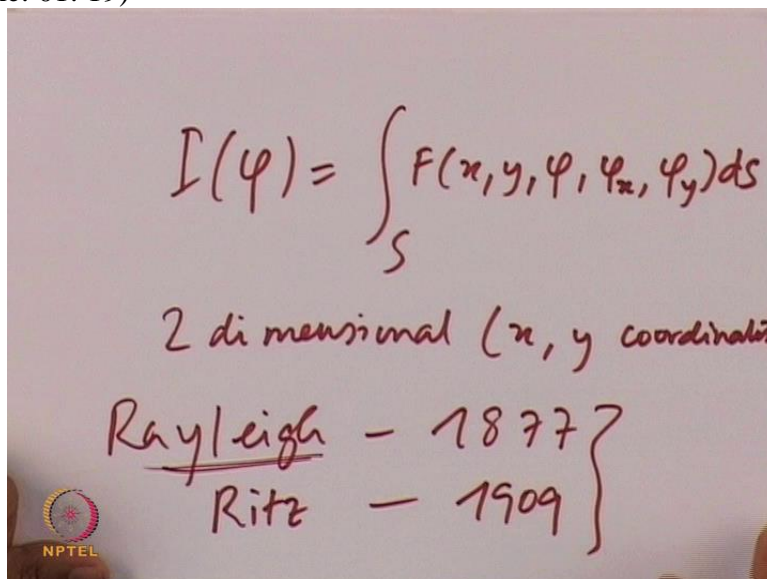 I(φ) = ∫_S F(x, y, φ, φ_x, φ_y) ds
2 dimensional (x, y coordinates
Rayleigh – 1877 }
Ritz – 1909
NPTEL